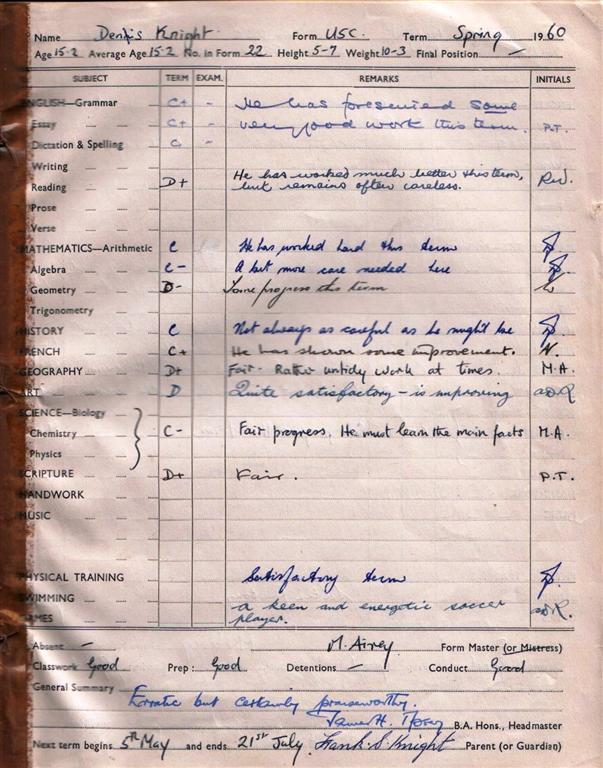 Name Dennis Knight Form USC. Term Spring 1960
Age 15·2 Average Age 15·2 No. in Form 22 Height 5-7 Weight 10-3 Final Position —
SUBJECT TERM EXAM. REMARKS INITIALS
ENGLISH—Grammar C+ - He has presented some
Essay C+ - very good work this term. P.T.
Dictation & Spelling C -
Writing
Reading D+ He has worked much better this term, but remains often careless.
Prose
Verse
MATHEMATICS—Arithmetic C He has worked hard this term
Algebra C- A bit more care needed here
Geometry D- Some progress this term
Trigonometry
HISTORY C Not always as careful as he might be
FRENCH C+ He has shown some improvement. N.
GEOGRAPHY D+ Fair. Rather untidy work at times. M.A.
ART D Quite satisfactory - is improving
SCIENCE—Biology
Chemistry C- Fair progress. He must learn the main facts M.A.
Physics
SCRIPTURE D+ Fair. P.T.
HANDWORK
MUSIC
PHYSICAL TRAINING Satisfactory term
SWIMMING
GAMES a keen and energetic soccer player.
Absent — M. Airey Form Master (or Mistress)
Classwork Good Prep: Good Detentions — Conduct Good
General Summary Erratic but certainly praiseworthy.
James H. B.A. Hons., Headmaster
Next term begins 5th May and ends 21st July. Frank S. Knight Parent (or Guardian)